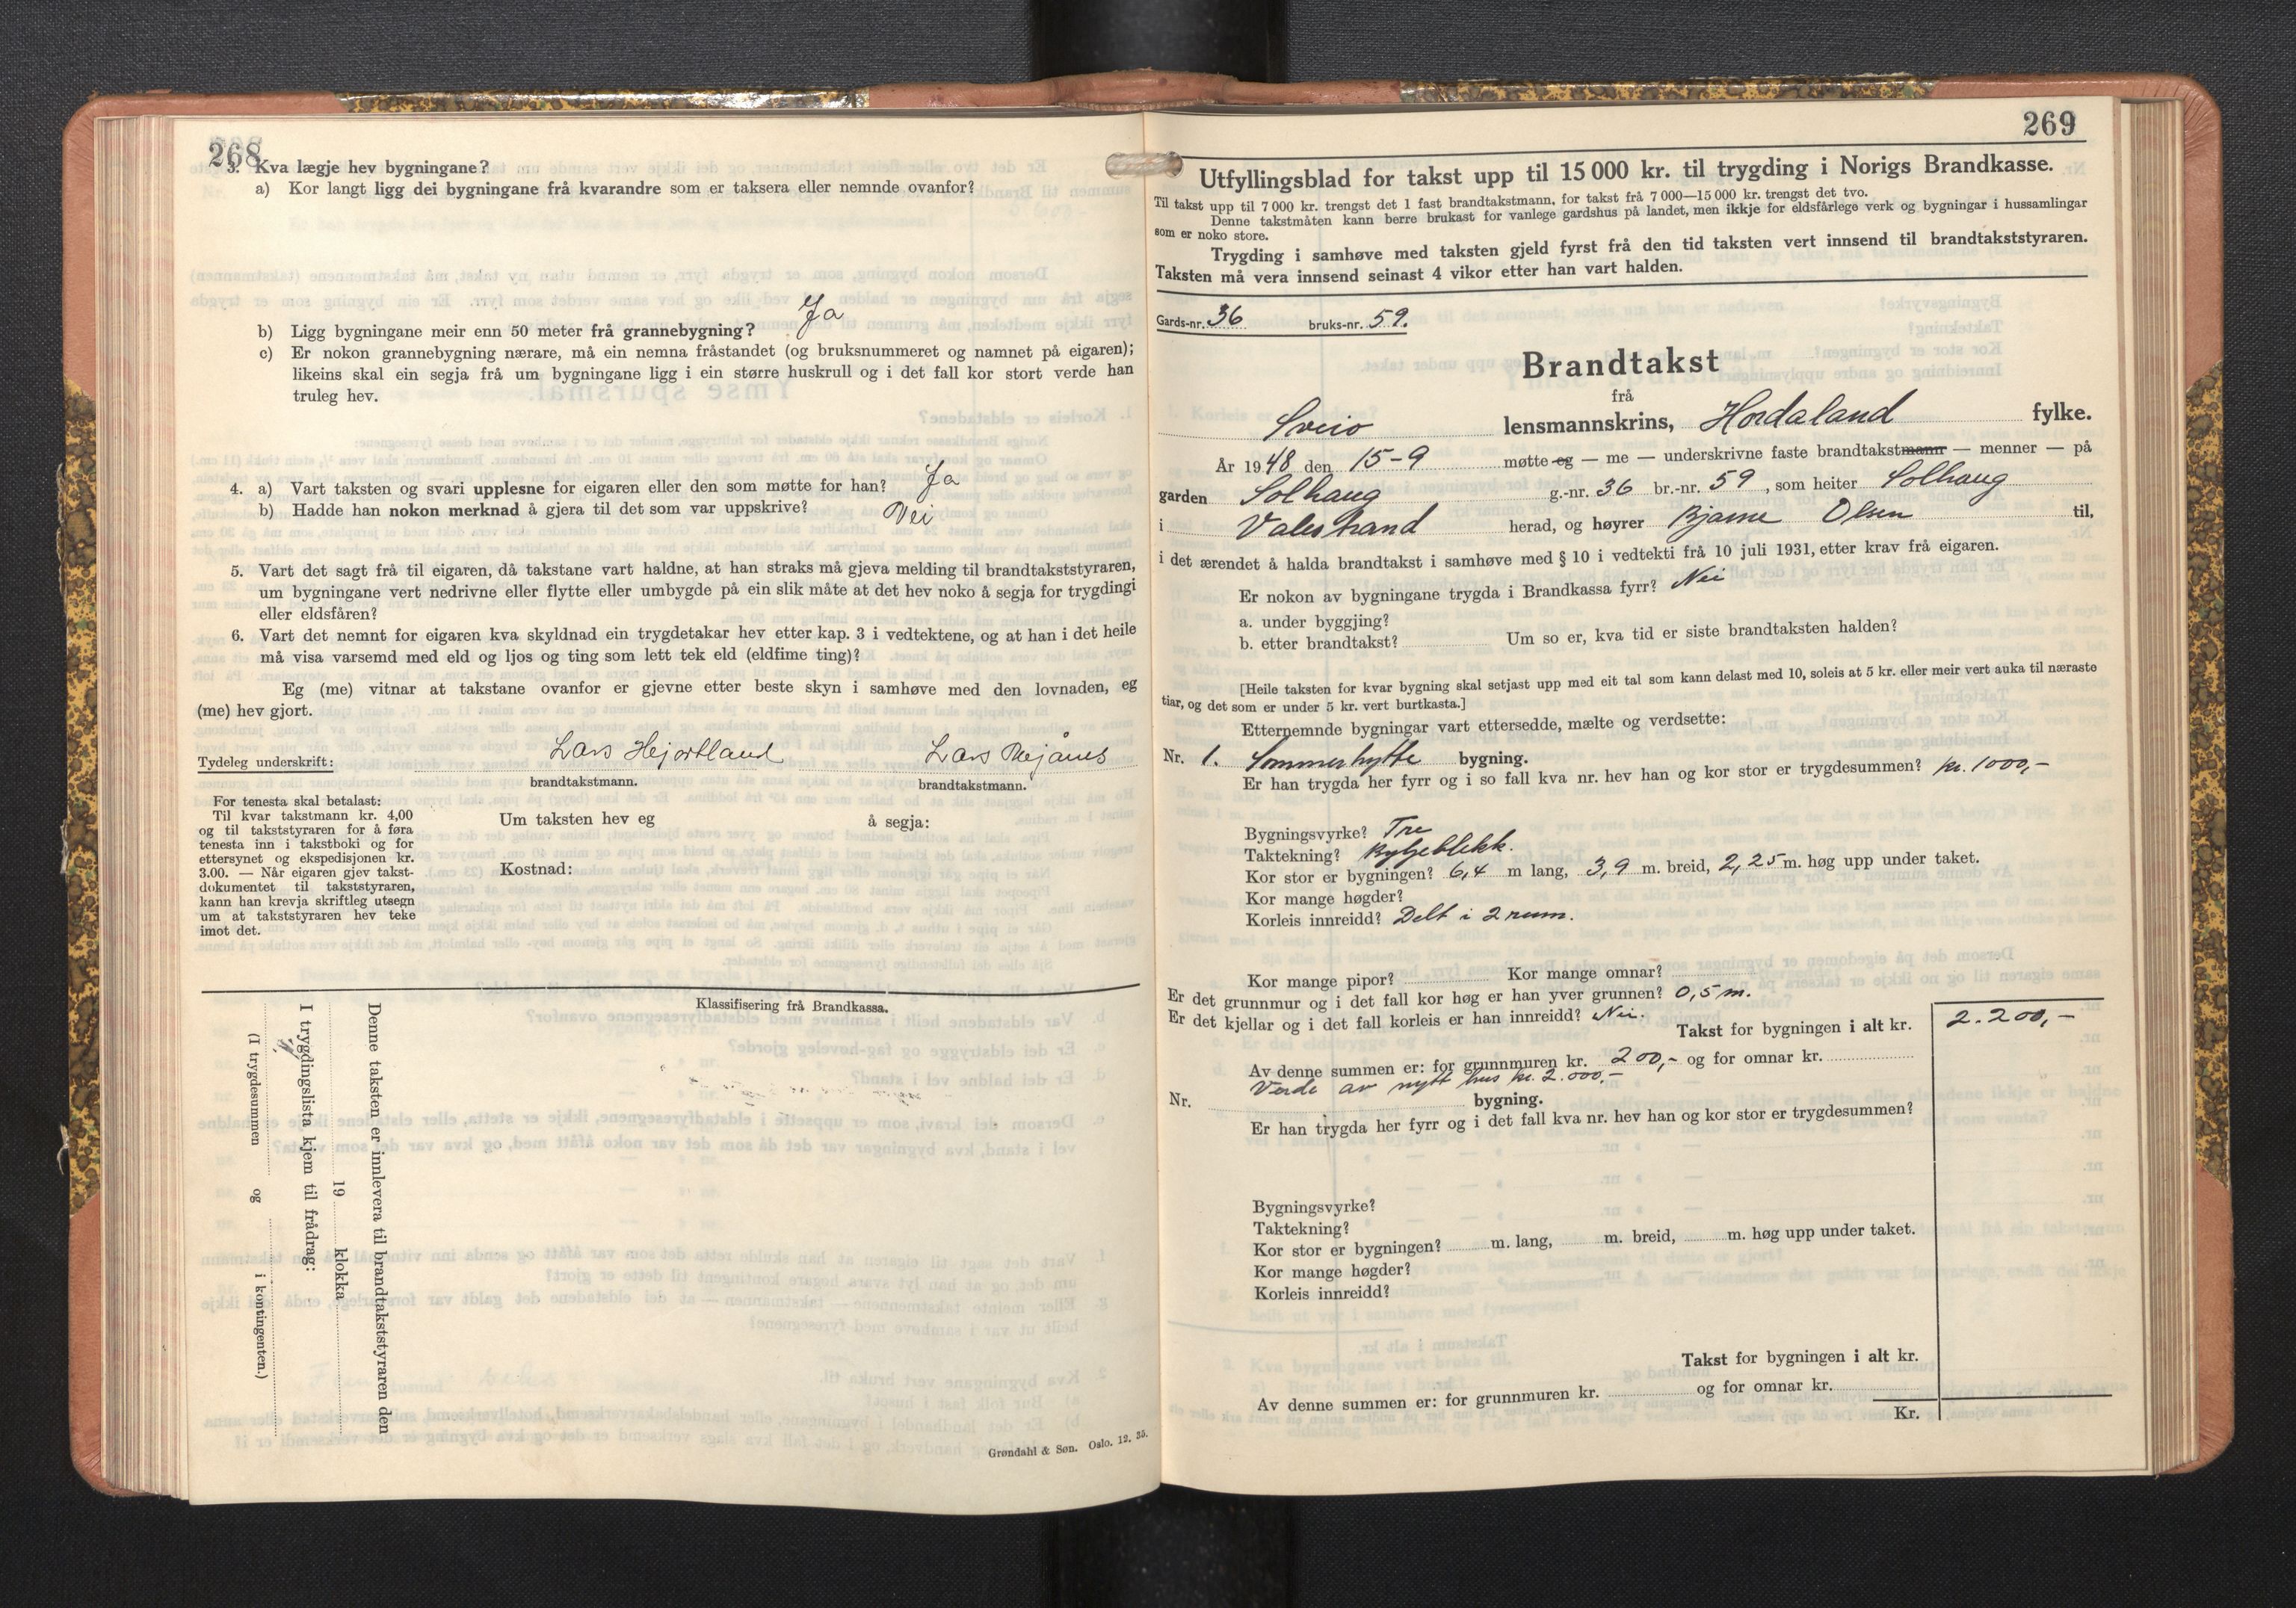 268
3. Kva lægje hev bygningane?
a) Kor langt ligg dei bygningane frå kvarandre som er taksera eller nemnde ovanfor?
b) Ligg bygningane meir enn 50 meter frå grannebygning? Ja
c) Er nokon grannebygning nærare, må ein nemna fråstandet (og bruksnummeret og namnet på eigaren);
likeins skal ein segja frå um bygningane ligg i ein større huskrull og i det fall kor stort verde han
truleg hev.
4. a) Vart taksten og svari upplesne for eigaren eller den som møtte for han? Ja
b) Hadde han nokon merknad å gjera til det som var uppskrive? Nei
5. Vart det sagt frå til eigaren, då takstane vart haldne, at han straks må gjeva melding til brandtakststyraren,
um bygningane vert nedrivne eller flytte eller umbygde på ein slik måte at det hev noko å segja for trygdingi
eller eldsfåren?
6. Vart det nemnt for eigaren kva skyldnad ein trygdetakar hev etter kap. 3 i vedtektene, og at han i det heile
må visa varsemd med eld og ljos og ting som lett tek eld (eldfime ting)?
Eg (me) vitnar at takstane ovanfor er gjevne etter beste skyn i samhøve med den lovnaden, eg
(me) hev gjort.
Tydeleg underskrift: Lars Hejortland Lars
brandtakstmann. brandtakstmann.
For tenesta skal betalast:
Til kvar takstmann kr. 4,00
og til takststyraren for å føra
tenesta inn i takstboki og for
ettersynet og ekspedisjonen kr.
3.00. — Når eigaren gjev takst-
dokumentet til takststyraren,
kann han krevja skriftleg utsegn
um at takststyraren hev teke
imot det.
Um taksten hev eg å segja:
Kostnad:
Klassifisering frå Brandkassa.
Denne taksten er innlevera til brandtakststyraren den
19 klokka
I trygdingslista kjem til frådrag:
(I trygdesummen og i kontingenten.)
Grøndahl & Søn. Oslo. 12. 35.
269
Utfyllingsblad for takst upp til 15 000 kr. til trygding i Norigs Brandkasse.
Til takst upp til 7 000 kr. trengst det 1 fast brandtakstmann, for takst frå 7 000—15 000 kr. trengst det tvo.
Denne takstmåten kann berre brukast for vanlege gardshus på landet, men ikkje for eldsfårlege verk og bygningar i hussamlingar
som er noko store.
Trygding i samhøve med taksten gjeld fyrst frå den tid taksten vert innsend til brandtakststyraren.
Taksten må vera innsend seinast 4 vikor etter han vart halden.
Gards-nr. 36 bruks-nr. 59.
Brandtakst
frå
Sveio lensmannskrins, Hordaland fylke.
År 1948 den 15-9 møtte eg — me — underskrivne faste brandtakstmann — menner — på
garden Solhaug g.-nr. 36 br.-nr. 59, som heiter Solhaug
i Valestrand herad, og høyrer Bjarne Olsen til,
i det ærendet å halda brandtakst i samhøve med § 10 i vedtekti frå 10 juli 1931, etter krav frå eigaren.
Er nokon av bygningane trygda i Brandkassa fyrr? Nei
a. under byggjing?
b. etter brandtakst? Um so er, kva tid er siste brandtaksten halden?
[Heile taksten for kvar bygning skal setjast upp med eit tal som kann delast med 10, soleis at 5 kr. eller meir vert auka til næraste
tiar, og det som er under 5 kr. vert burtkasta.]
Etternemnde bygningar vart ettersedde, mælte og verdsette:
Nr. 1. Sommerhytte bygning.
Er han trygda her fyrr og i so fall kva nr. hev han og kor stor er trygdesummen? kr. 1000,-
Bygningsvyrke? Tre
Taktekning? Bylgjeblekk.
Kor stor er bygningen? 6,4 m lang, 3,9 m. breid, 2,25 m. høg upp under taket.
Kor mange høgder?
Korleis innreidd? Delt i 2 rum.
Kor mange pipor? Kor mange omnar?
Er det grunnmur og i det fall kor høg er han yver grunnen? 0,5 m.
Er det kjellar og i det fall korleis er han innreidd? Nei.
Takst for bygningen i alt kr. 2.200,-
Av denne summen er: for grunnmuren kr. 200,- og for omnar kr.
Verde av nytt hus kr. 2.000,-
Nr. bygning.
Er han trygda her fyrr og i det fall kva nr. hev han og kor stor er trygdesummen?
Bygningsvyrke?
Taktekning?
Kor stor er bygningen? m. lang, m. breid, m. høg upp under taket.
Kor mange høgder?
Korleis innreidd?
Takst for bygningen i alt kr.
Av denne summen er: for grunnmuren kr. og for omnar kr.
Kr.